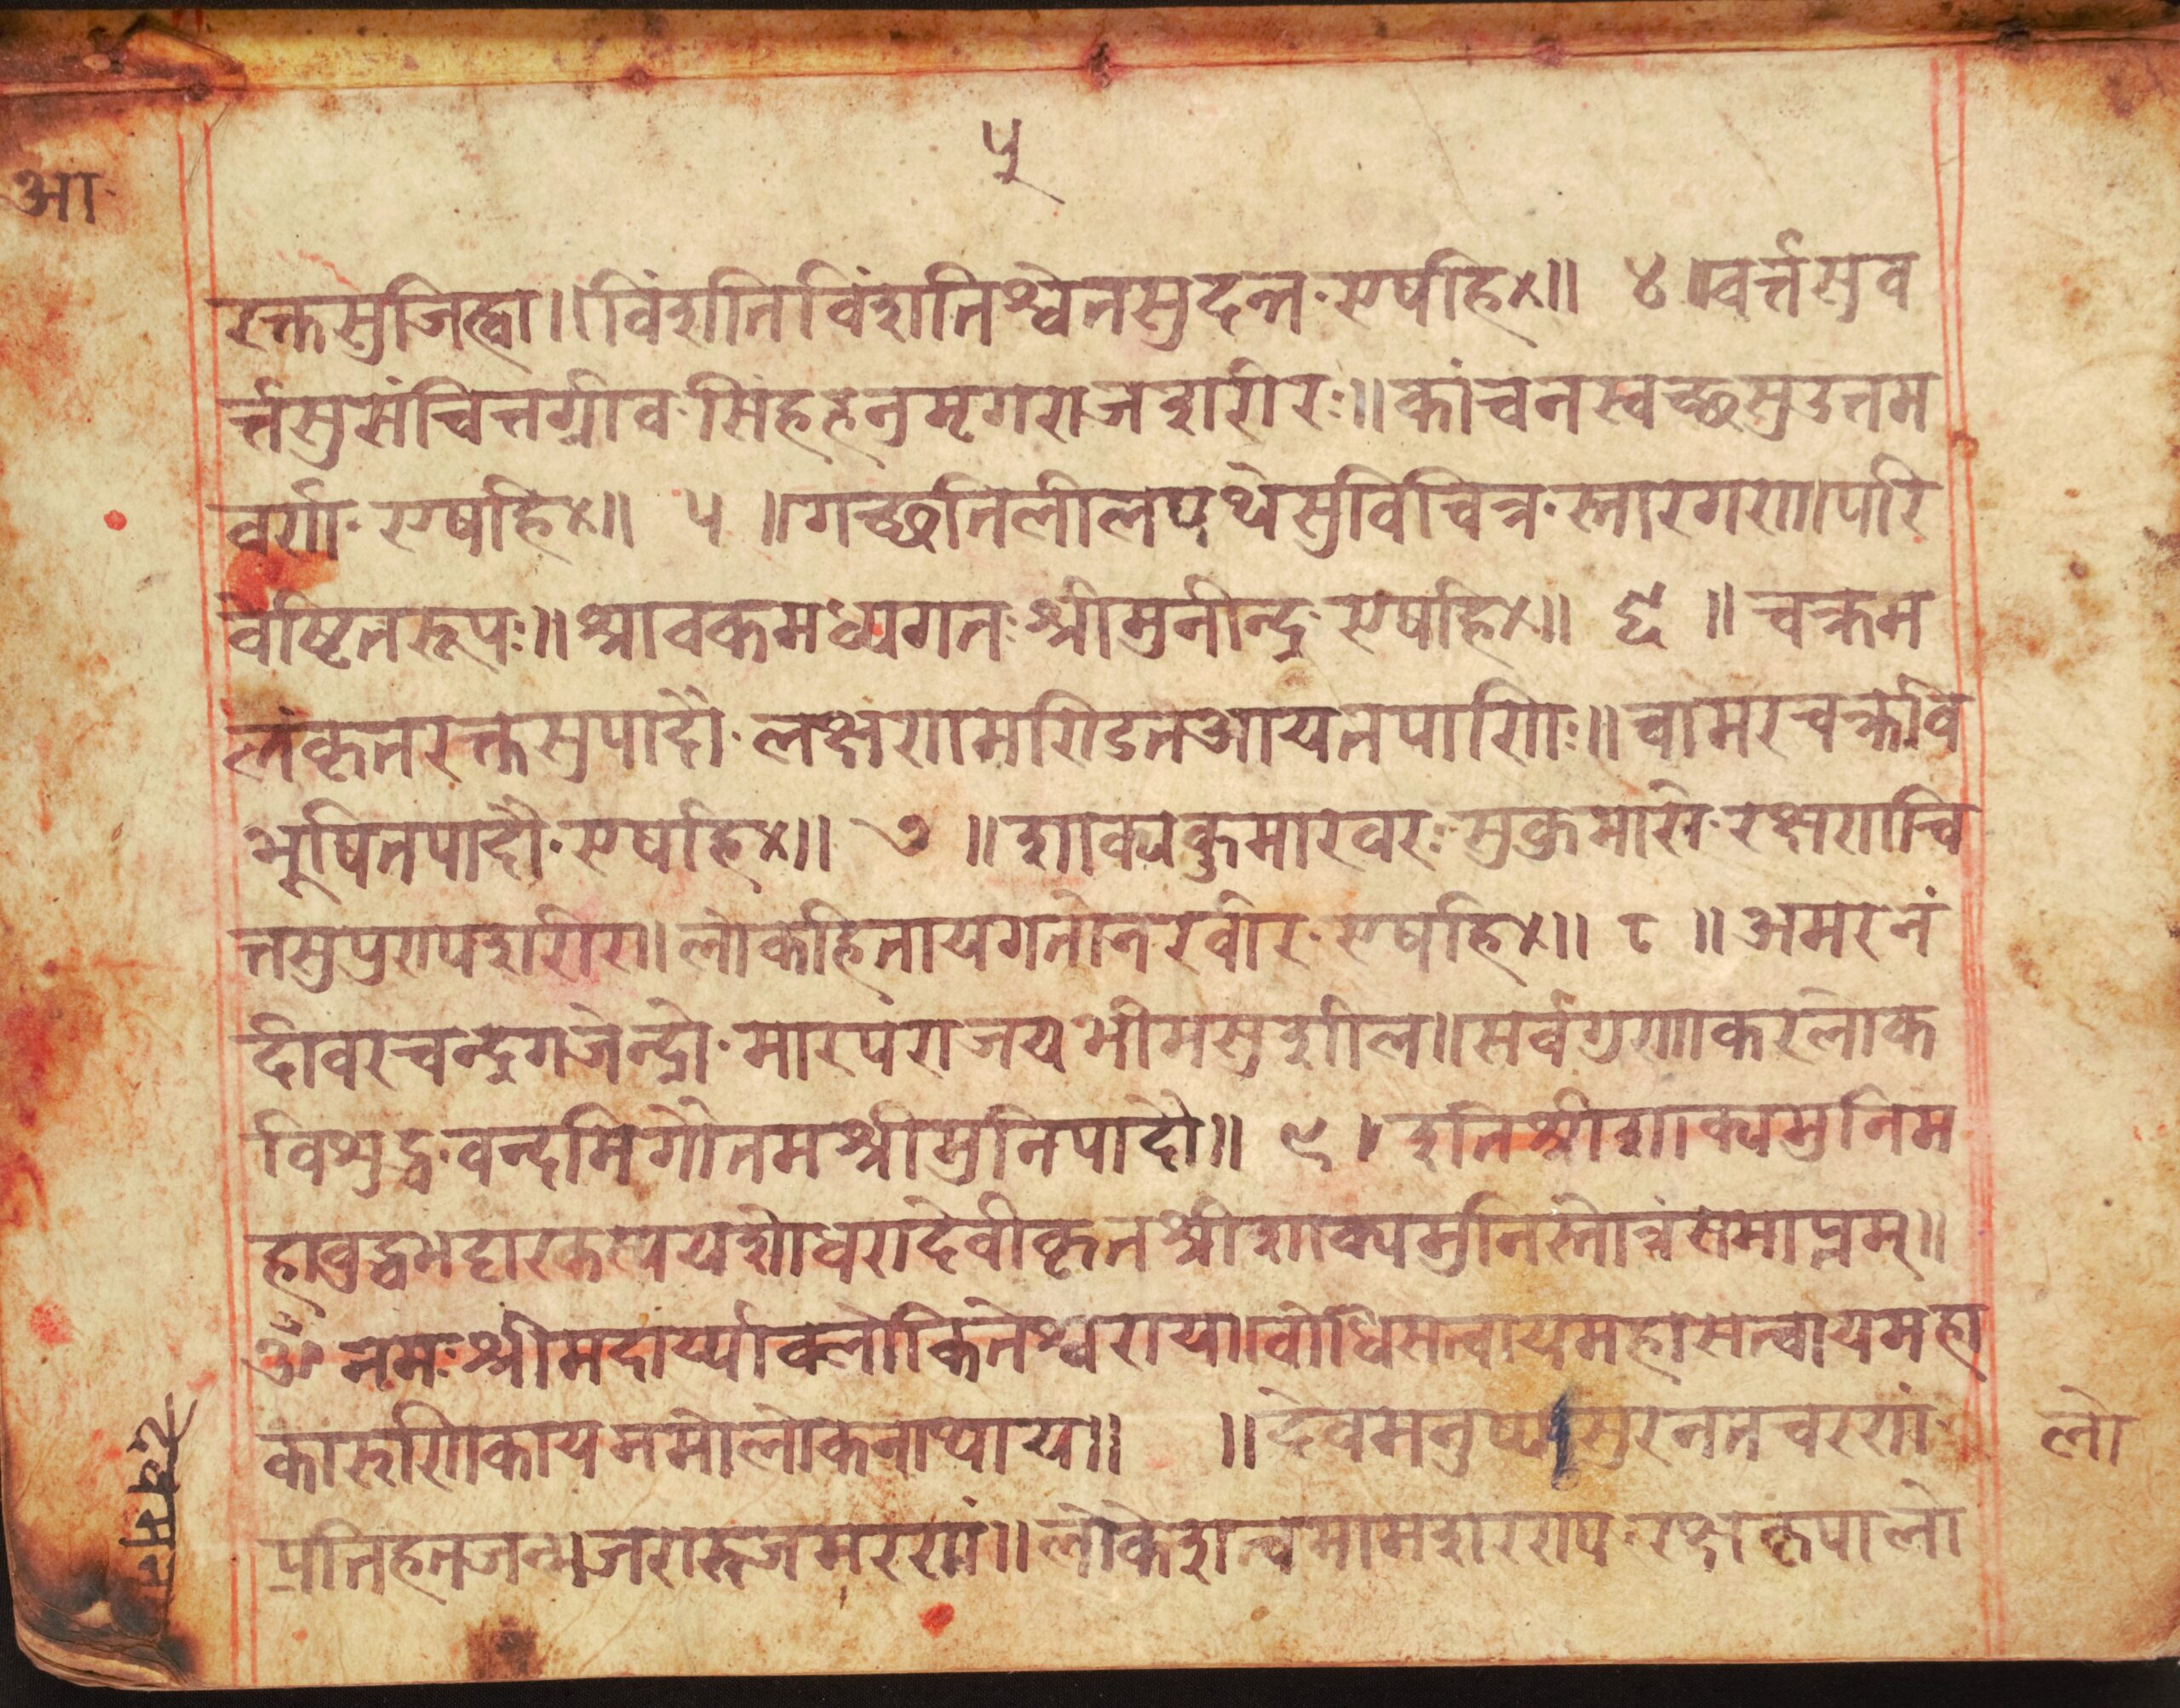 ५
आ
रक्तसुजिह्वा॥विंशतिविंशतिश्वेतसुदन्त·एषहि४॥ ४॥वर्त्तसुव
र्त्तसुसंचित्तर्ग्रीव·सिंहहनुमृगराजशरीरः॥कांचनस्वच्छसुउत्तम
वर्ण·एषहि४॥ ५ ॥गच्छतिलीलपथेसुविचित्र·स्तारगण॥परि
वेष्टितरूपः॥श्रावकमध्यगतःश्रीमुनीन्द्र·एषहि४॥ ६ ॥चक्रम
लंकृतरक्तसुपादौ·लक्षणमण्डितआयतपाणिः॥चामरचक्रवि
भूषितपादौ·एषहि४॥ ७ ॥शाक्यकुमारवरःसुकुमासे·रक्षणचि
त्तसुपुण्यशरीर॥लोकहितायगतोनरवीर·एषहि४॥ ८ ॥अमरनं
दीवरचन्द्रगजेन्द्रो·मारपराजयभीमसुशील॥सर्वगुणाकरलोक
विशुद्ध·वन्दमिगौतमश्रीमुनिपादौ॥ ९।इतिश्रीशाक्यमुनिम
हाबुद्धभट्टारकस्ययशोधरादेवीकृतश्रीशाक्यमुनिस्तोत्रंसमाप्तम्॥
ॐ नमःश्रीमदार्य्यावलोकितेश्वराय॥वोधिसत्वायमहासत्वायमहा
कारुणिकायनमोलोकनाथाय॥ ॥देवमनुष्यासुरनतचरणं
लो
पतिहतजन्मजरारुजमरणं॥लोकेशत्वमामशरण्य·रक्षकृपालो
देवमन